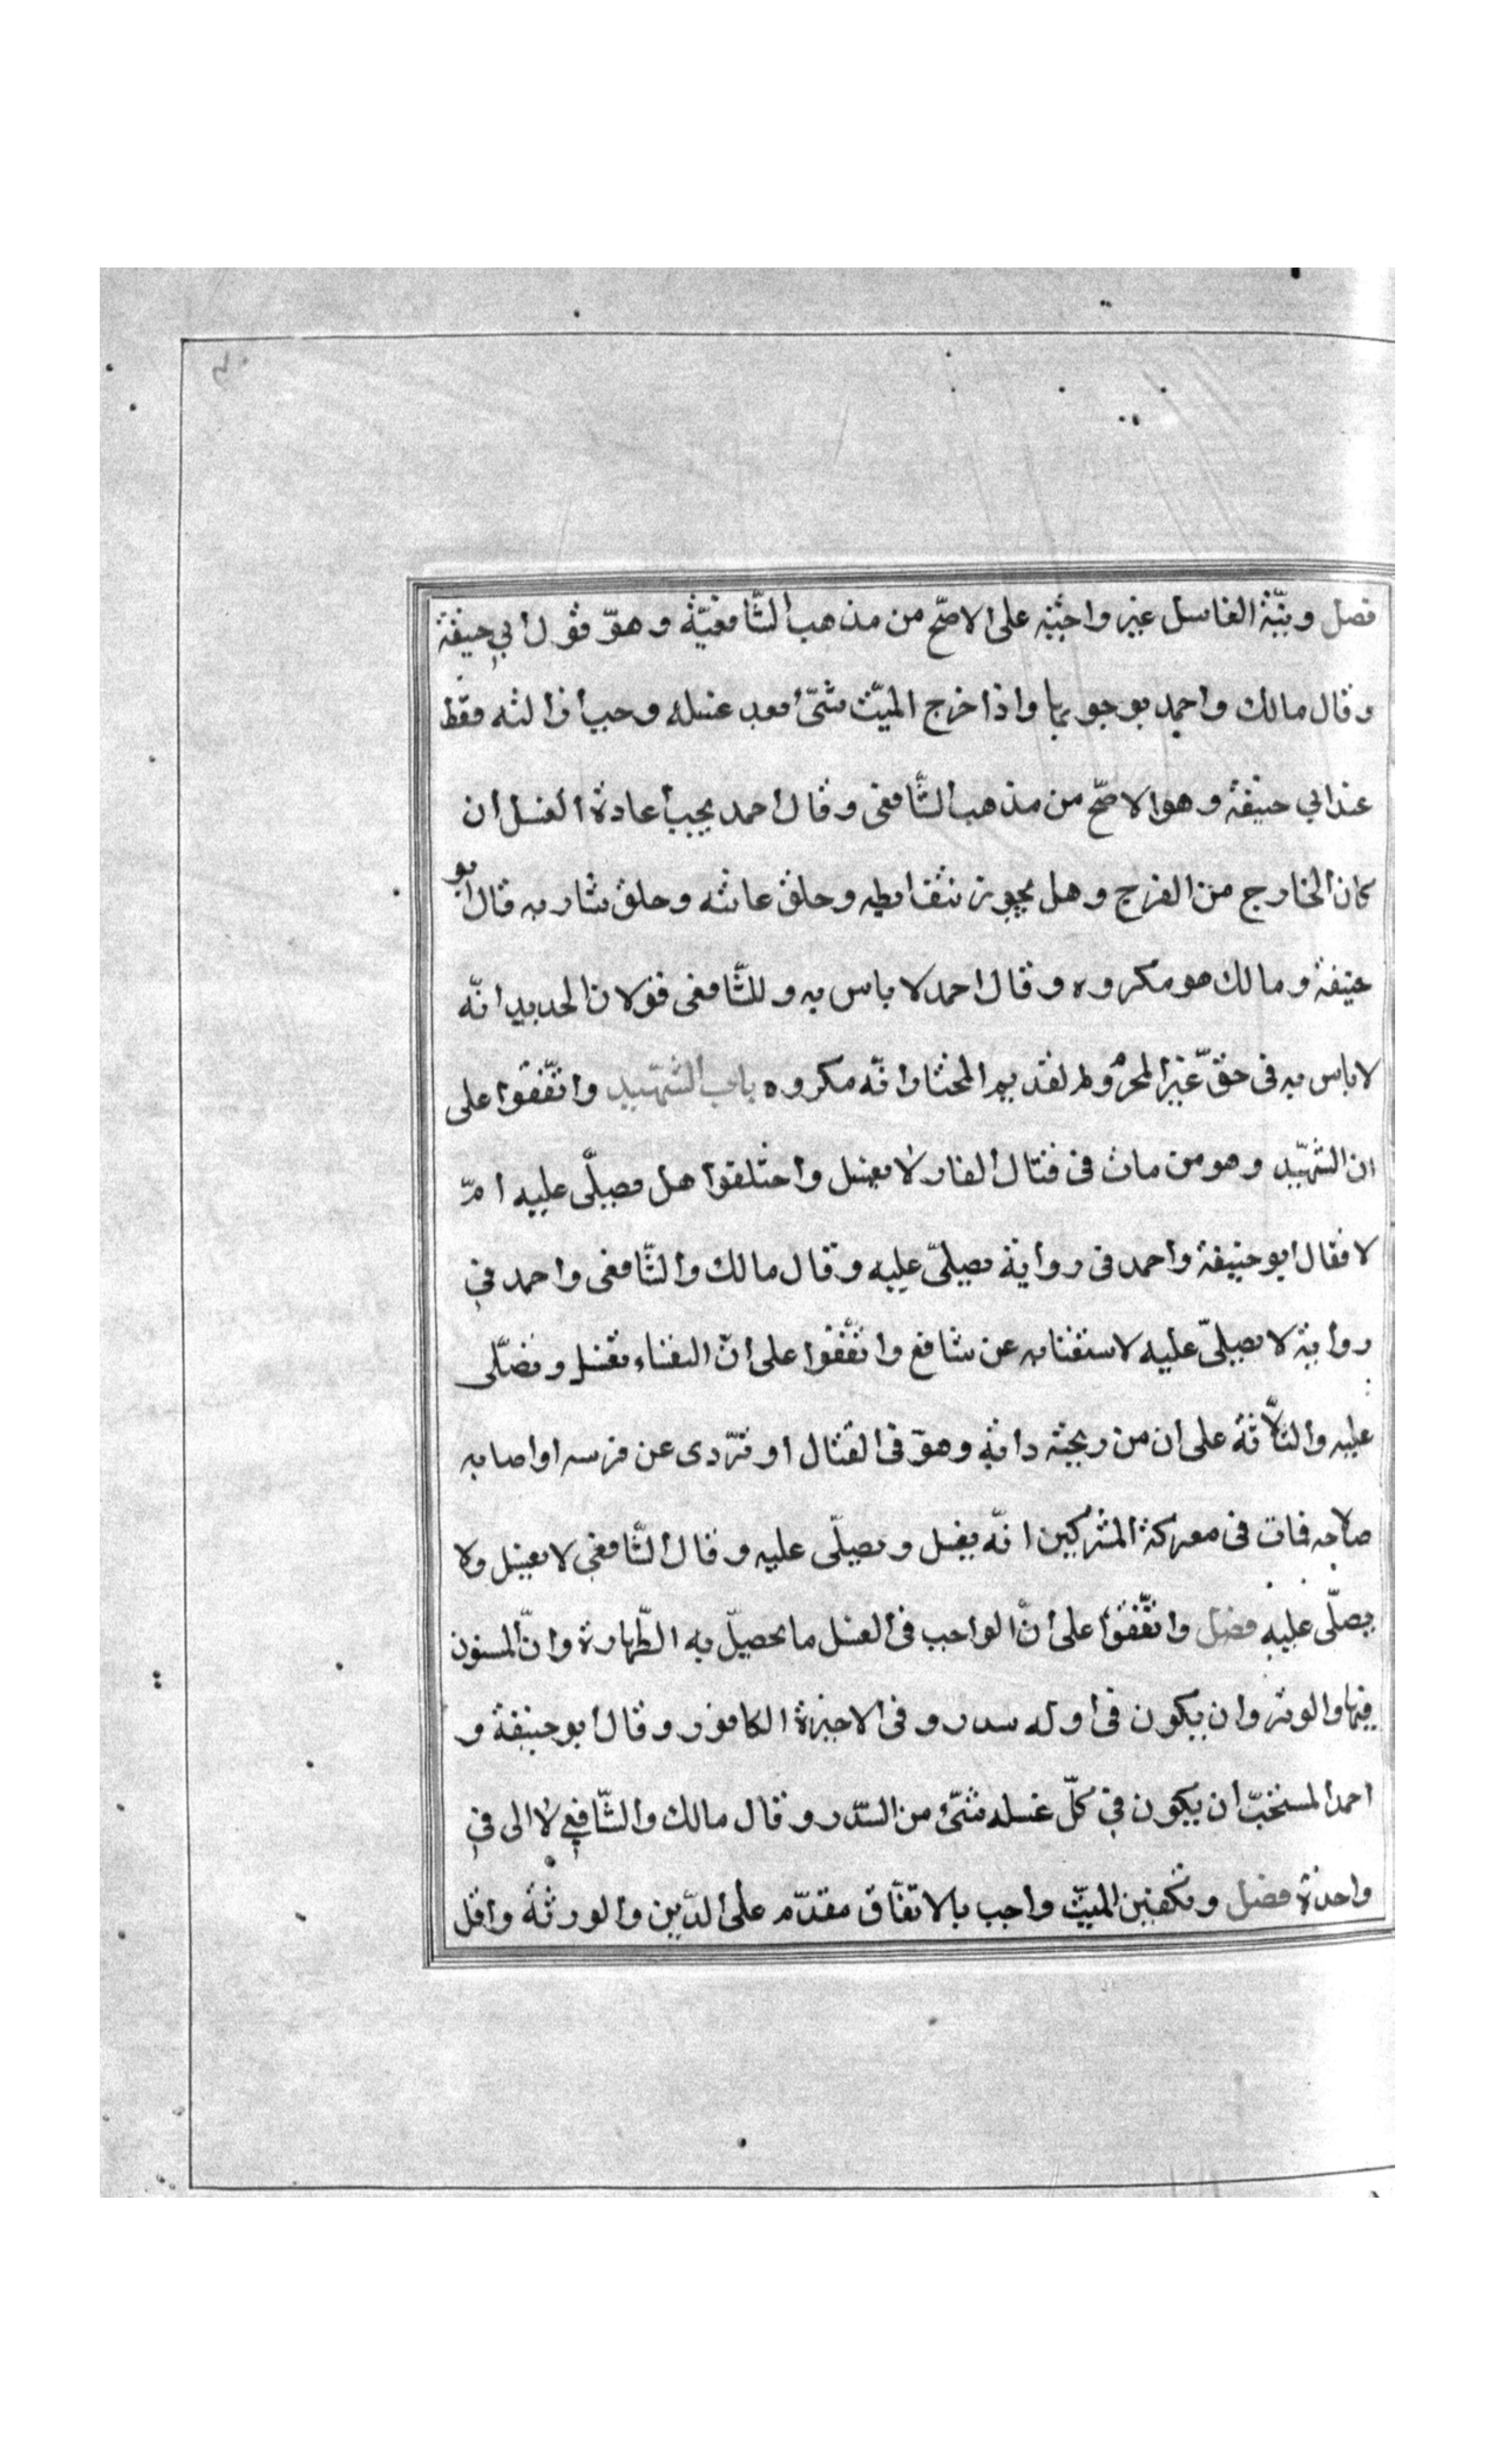 فصل ونيّة الغاسل غير واجبة على الاصّح من مذهب الشّافعيّة وهوّ قول ابي حنيفة
وقال مالك واحمد بوجوبها واذا خرج الميّت شئ بعد غسله وجب ازالته فقط
عند ابي حنيفة وهو الاصّح من مذهب الشّافعى وقال احمد يجب اعادة الغسل ان
كان الخارج من الفرج وهل يجوز نتف ابطه وحلق عانته وحلق شاربه قال ابو
حنيفة ومالك هو مكروه وقال احمد لا باس به وللشّافعى قولان الجديد انّه
لا باس به فى حقّ غير المحرم ولم لقديم المختار انّه مكروه باب الشهيد واتّفقوا على
ان الشهيّد وهو من مات فى قتال الفار لا يغسل واختلفوا هل يصلّى عليه امّ
لا فقال ابو حنيفة واحمد فى رواية يصلىّ عليه وقال مالك والشّافعى واحمد في
رواية لا يصلىّ عليه لاستغنائه عن شافع واتّفقوا على انّ النفساء تغسل وتصّلى
عليه والثّلاثة على ان من ريحته دابته وهوّ فى القتال او تردّى عن فرسه او اصابه
صلاحه فمات فى معركة المشركين انّه يغسل ويصلّى عليه وقال الشّافعى لا يغسل ولا
يصلّى عليه فصل واتّفقوا على انّ الواجب فى الغسل ما يحصلّ به الطّهارة وانّ المسنون
فيها والوتر وان يكون فى اوله سدر وفى الاخيرة الكافور وقال ابو حنيفة و
احمد المستحبّ ان يكون في كلّ غسله شئ من السّدر وقال مالك والشّافعي لا الى في
واحدة فصل وتكفين الميّت واجب بالاتفّاق مقدّم على الدّين والورثة واقل